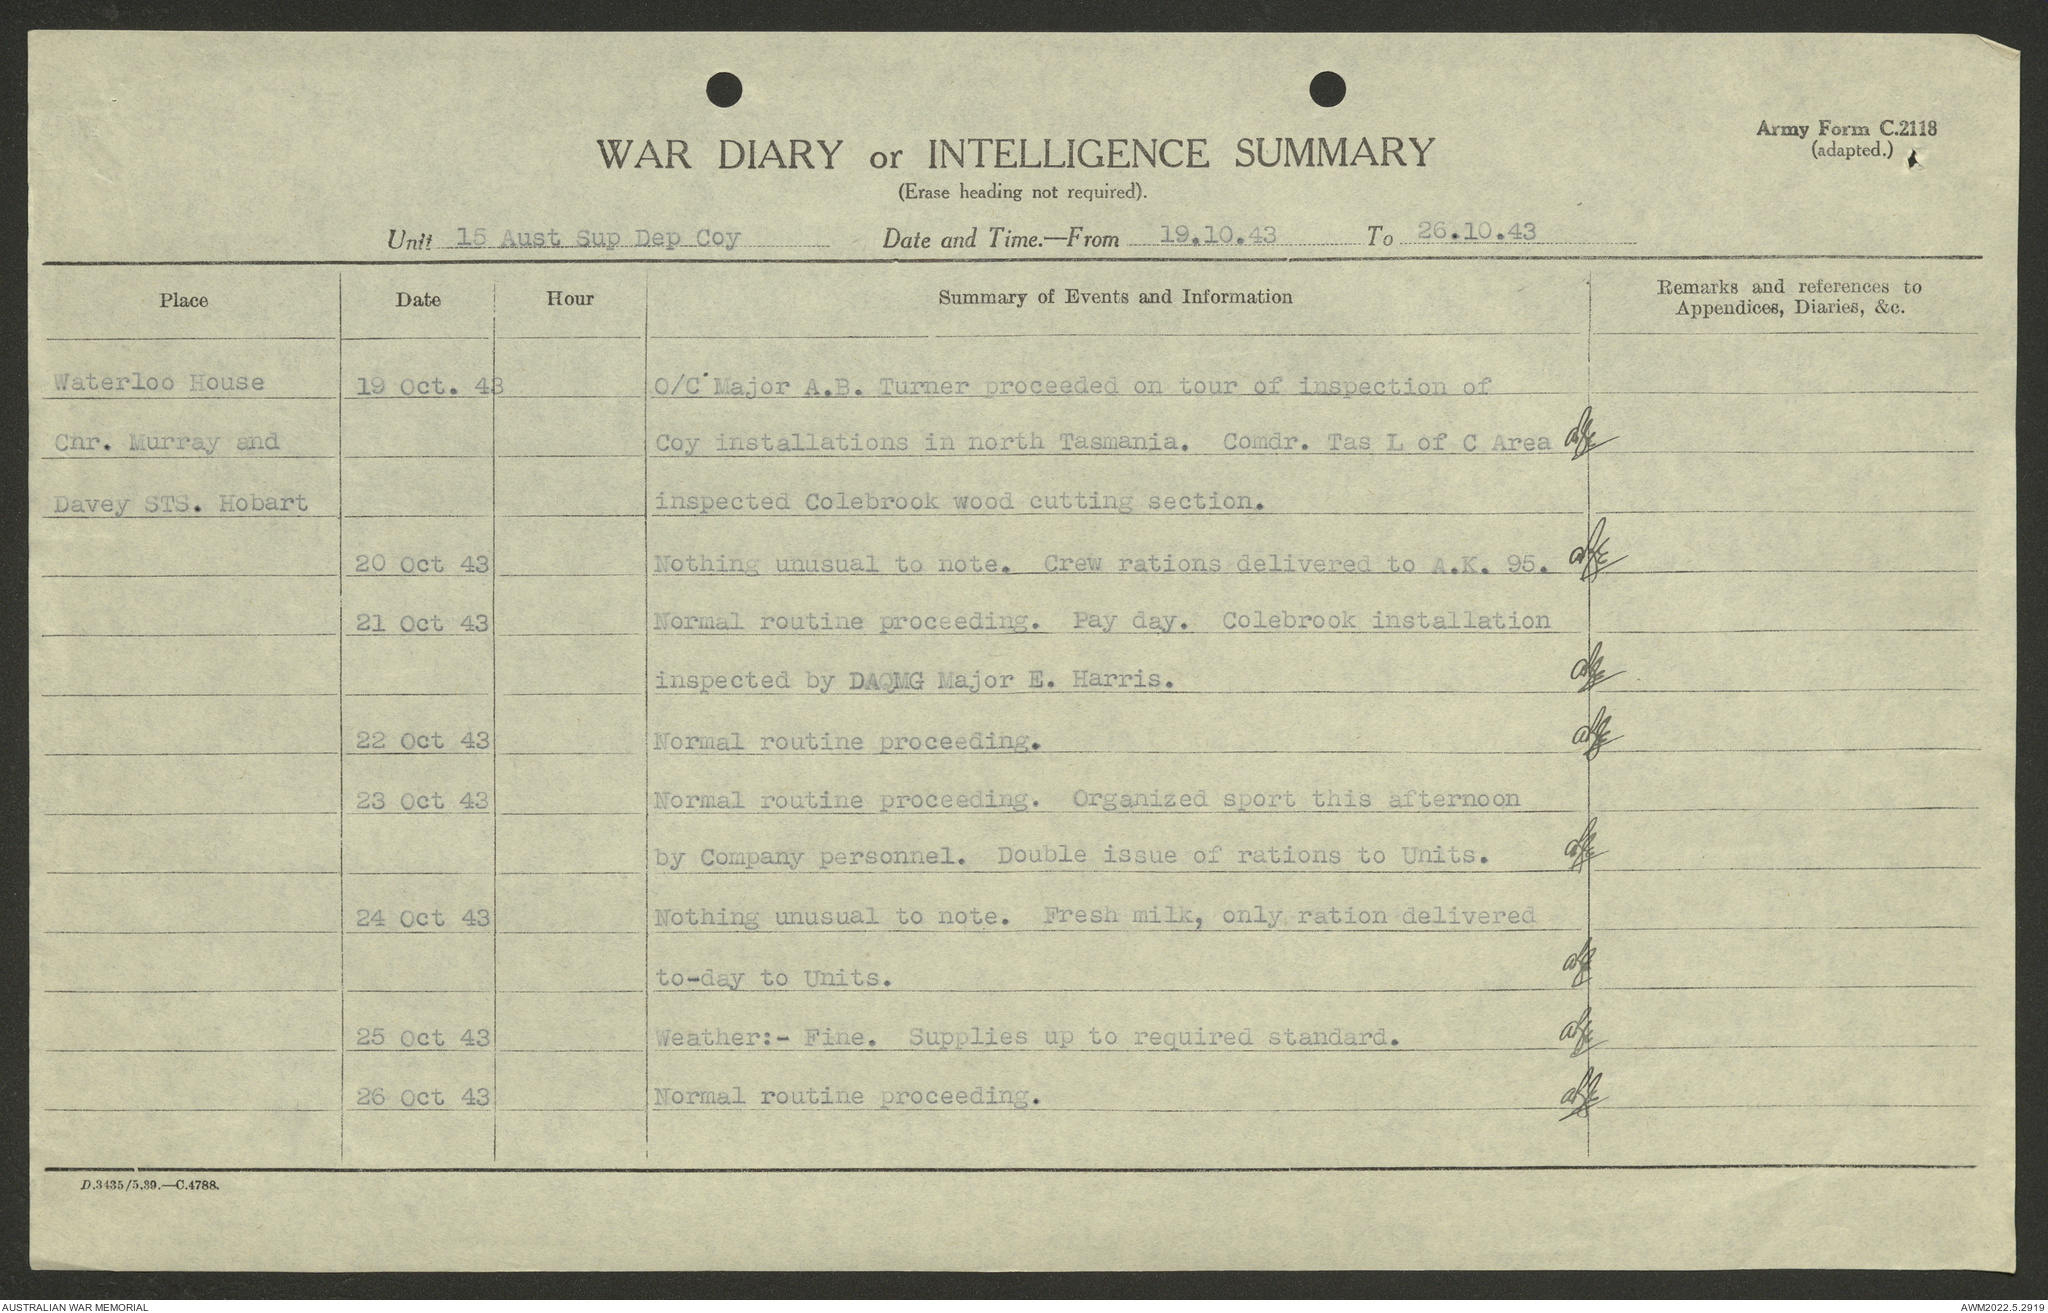 Army Form C.2118
(adapted.)
WAR DIARY or INTELLIGENCE SUMMARY
(Erase heading not required).
Unit 15 Aust Sup Dep Coy Date and Time.—From 19.10.43 To 26.10.43
Place Date Hour Summary of Events and Information Remarks and references to
Appendices, Diaries, &c.
Waterloo House 19 Oct. 43 O/C Major A.B. Turner proceeded on tour of inspection of
Cnr. Murray and Coy installations in north Tasmania. Comdr. Tas L of C Area
Davey STS. Hobart inspected Colebrook wood cutting section.
20 Oct 43 Nothing unusual to note. Crew rations delivered to A.K. 95.
21 Oct 43 Normal routine proceeding. Pay day. Colebrook installation
inspected by DAQMG Major E. Harris.
22 Oct 43 Normal routine proceeding.
23 Oct 43 Normal routine proceeding. Organized sport this afternoon
by Company personnel. Double issue of rations to Units.
24 Oct 43 Nothing unusual to note. Fresh milk, only ration delivered
to-day to Units.
25 Oct 43 Weather:- Fine. Supplies up to required standard.
26 Oct 43 Normal routine proceeding.
D.3435/5.39.—C.4788.
AUSTRALIAN WAR MEMORIAL AWM2022.5.2919